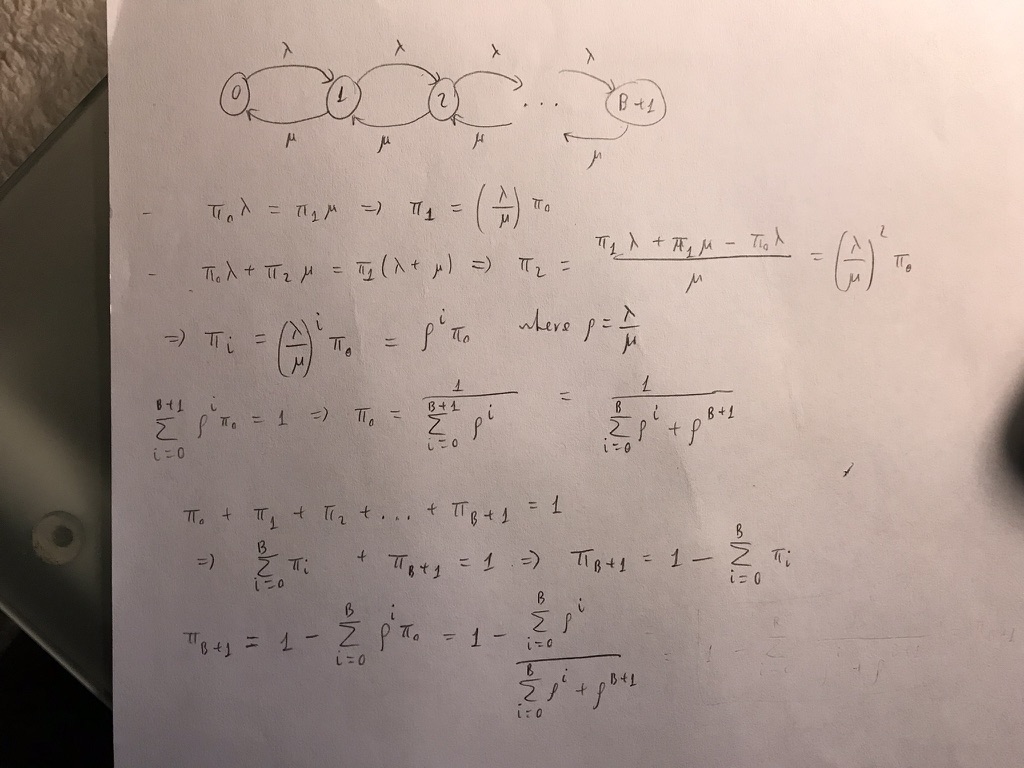 λ λ λ λ
0 1 2 ... B+1
μ μ μ μ
- π₀λ = π₁μ => π₁ = (λ/μ) π₀
- π₀λ + π₂μ = π₁(λ + μ) => π₂ = (π₁λ + π₁μ - π₀λ)/μ = (λ/μ)² π₀
=> πᵢ = (λ/μ)ⁱ π₀ = ρⁱ π₀ where ρ = λ/μ
∑_{i=0}^{B+1} ρⁱ π₀ = 1 => π₀ = 1/(∑_{i=0}^{B+1} ρⁱ) = 1/(∑_{i=0}^{B} ρⁱ + ρ^{B+1})
π₀ + π₁ + π₂ + ... + π_{B+1} = 1
=> ∑_{i=0}^{B} πᵢ + π_{B+1} = 1 => π_{B+1} = 1 - ∑_{i=0}^{B} πᵢ
π_{B+1} = 1 - ∑_{i=0}^{B} ρⁱ π₀ = 1 - (∑_{i=0}^{B} ρⁱ)/(∑_{i=0}^{B} ρⁱ + ρ^{B+1})